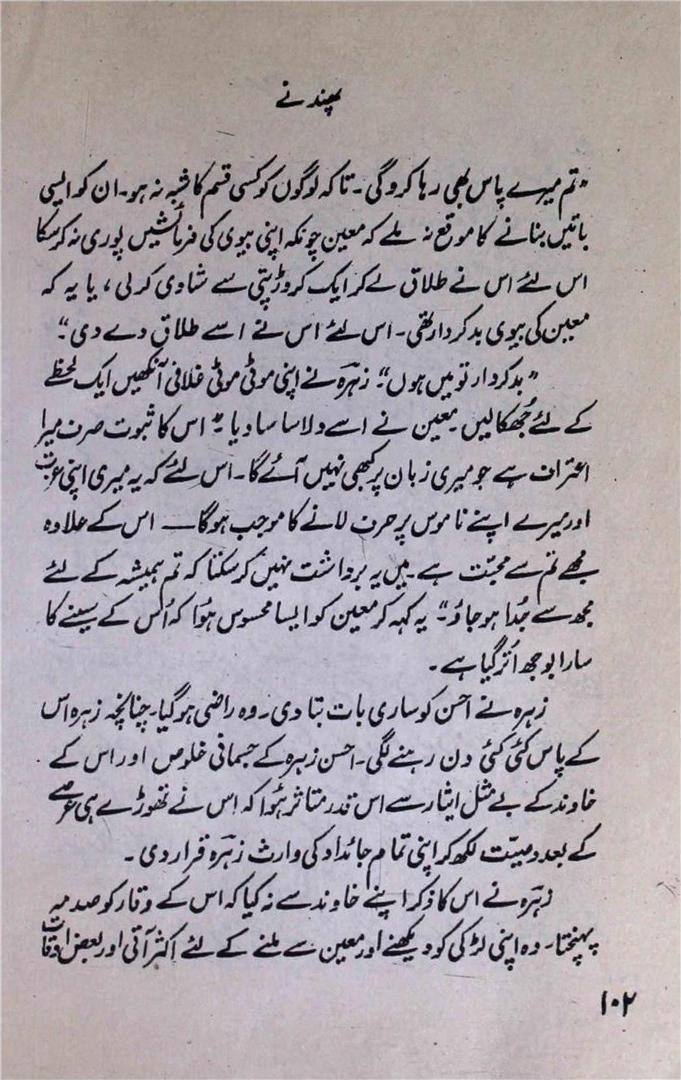 پھندنے
"تم میرے پاس بھی رہا کرو گی۔ تاکہ لوگوں کو کسی قسم کا شبہ نہ ہو۔ ان کو ایسی
باتیں بنانے کا موقع نہ ملے کہ معین چونکہ اپنی بیوی کی فرمائشیں پوری نہ کر سکا
اس لئے اس نے طلاق لے کر ایک کروڑ پتی سے شادی کر لی، یا یہ کہ
معین کی بیوی بدکردار تھی۔ اس لئے اس نے اسے طلاق دے دی"۔
"بدکردار تو میں ہوں"۔ زہرہ نے اپنی موٹی موٹی غلافی آنکھیں ایک لحظے
کے لئے جُھکا لیں۔ معین نے اسے دلاسا سا دیا۔ "اس کا ثبوت صرف میرا
اعتراف ہے جو میری زبان پر کبھی نہیں آئے گا۔ اس لئے کہ یہ میری اپنی عزت
اور میرے اپنے ناموس پر حرف لانے کا موجب ہو گا — اس کے علاوہ
مجھے تم سے محبّت ہے۔ میں یہ برداشت نہیں کر سکتا کہ تم ہمیشہ کے لئے
مجھ سے جُدا ہو جاؤ"۔ یہ کہہ کر معین کو ایسا محسوس ہوُا کہ اُس کے سینے کا
سارا بوجھ اُتر گیا ہے۔
زہرہ نے احسن کو ساری بات بتا دی۔ وہ راضی ہو گیا۔ چنانچہ زہرہ اس
کے پاس کئی کئی دن رہنے لگی۔ احسن زہرہ کے جسمانی خلوص اور اس کے
خاوند کے بے مثل ایثار سے اس قدر متاثر ہوُا کہ اس نے تھوڑے ہی عرصے
کے بعد وصیّت لکھ کر اپنی تمام جائداد کی وارث زہرہ قرار دی۔
زہرہ نے اس کا ذکر اپنے خاوند سے نہ کیا کہ اس کے وقار کو صدمہ
پہنچتا۔ وہ اپنی لڑکی کو دیکھنے اور معین سے ملنے کے لئے اکثر آتی اور بعض اوقات
۱۰۲